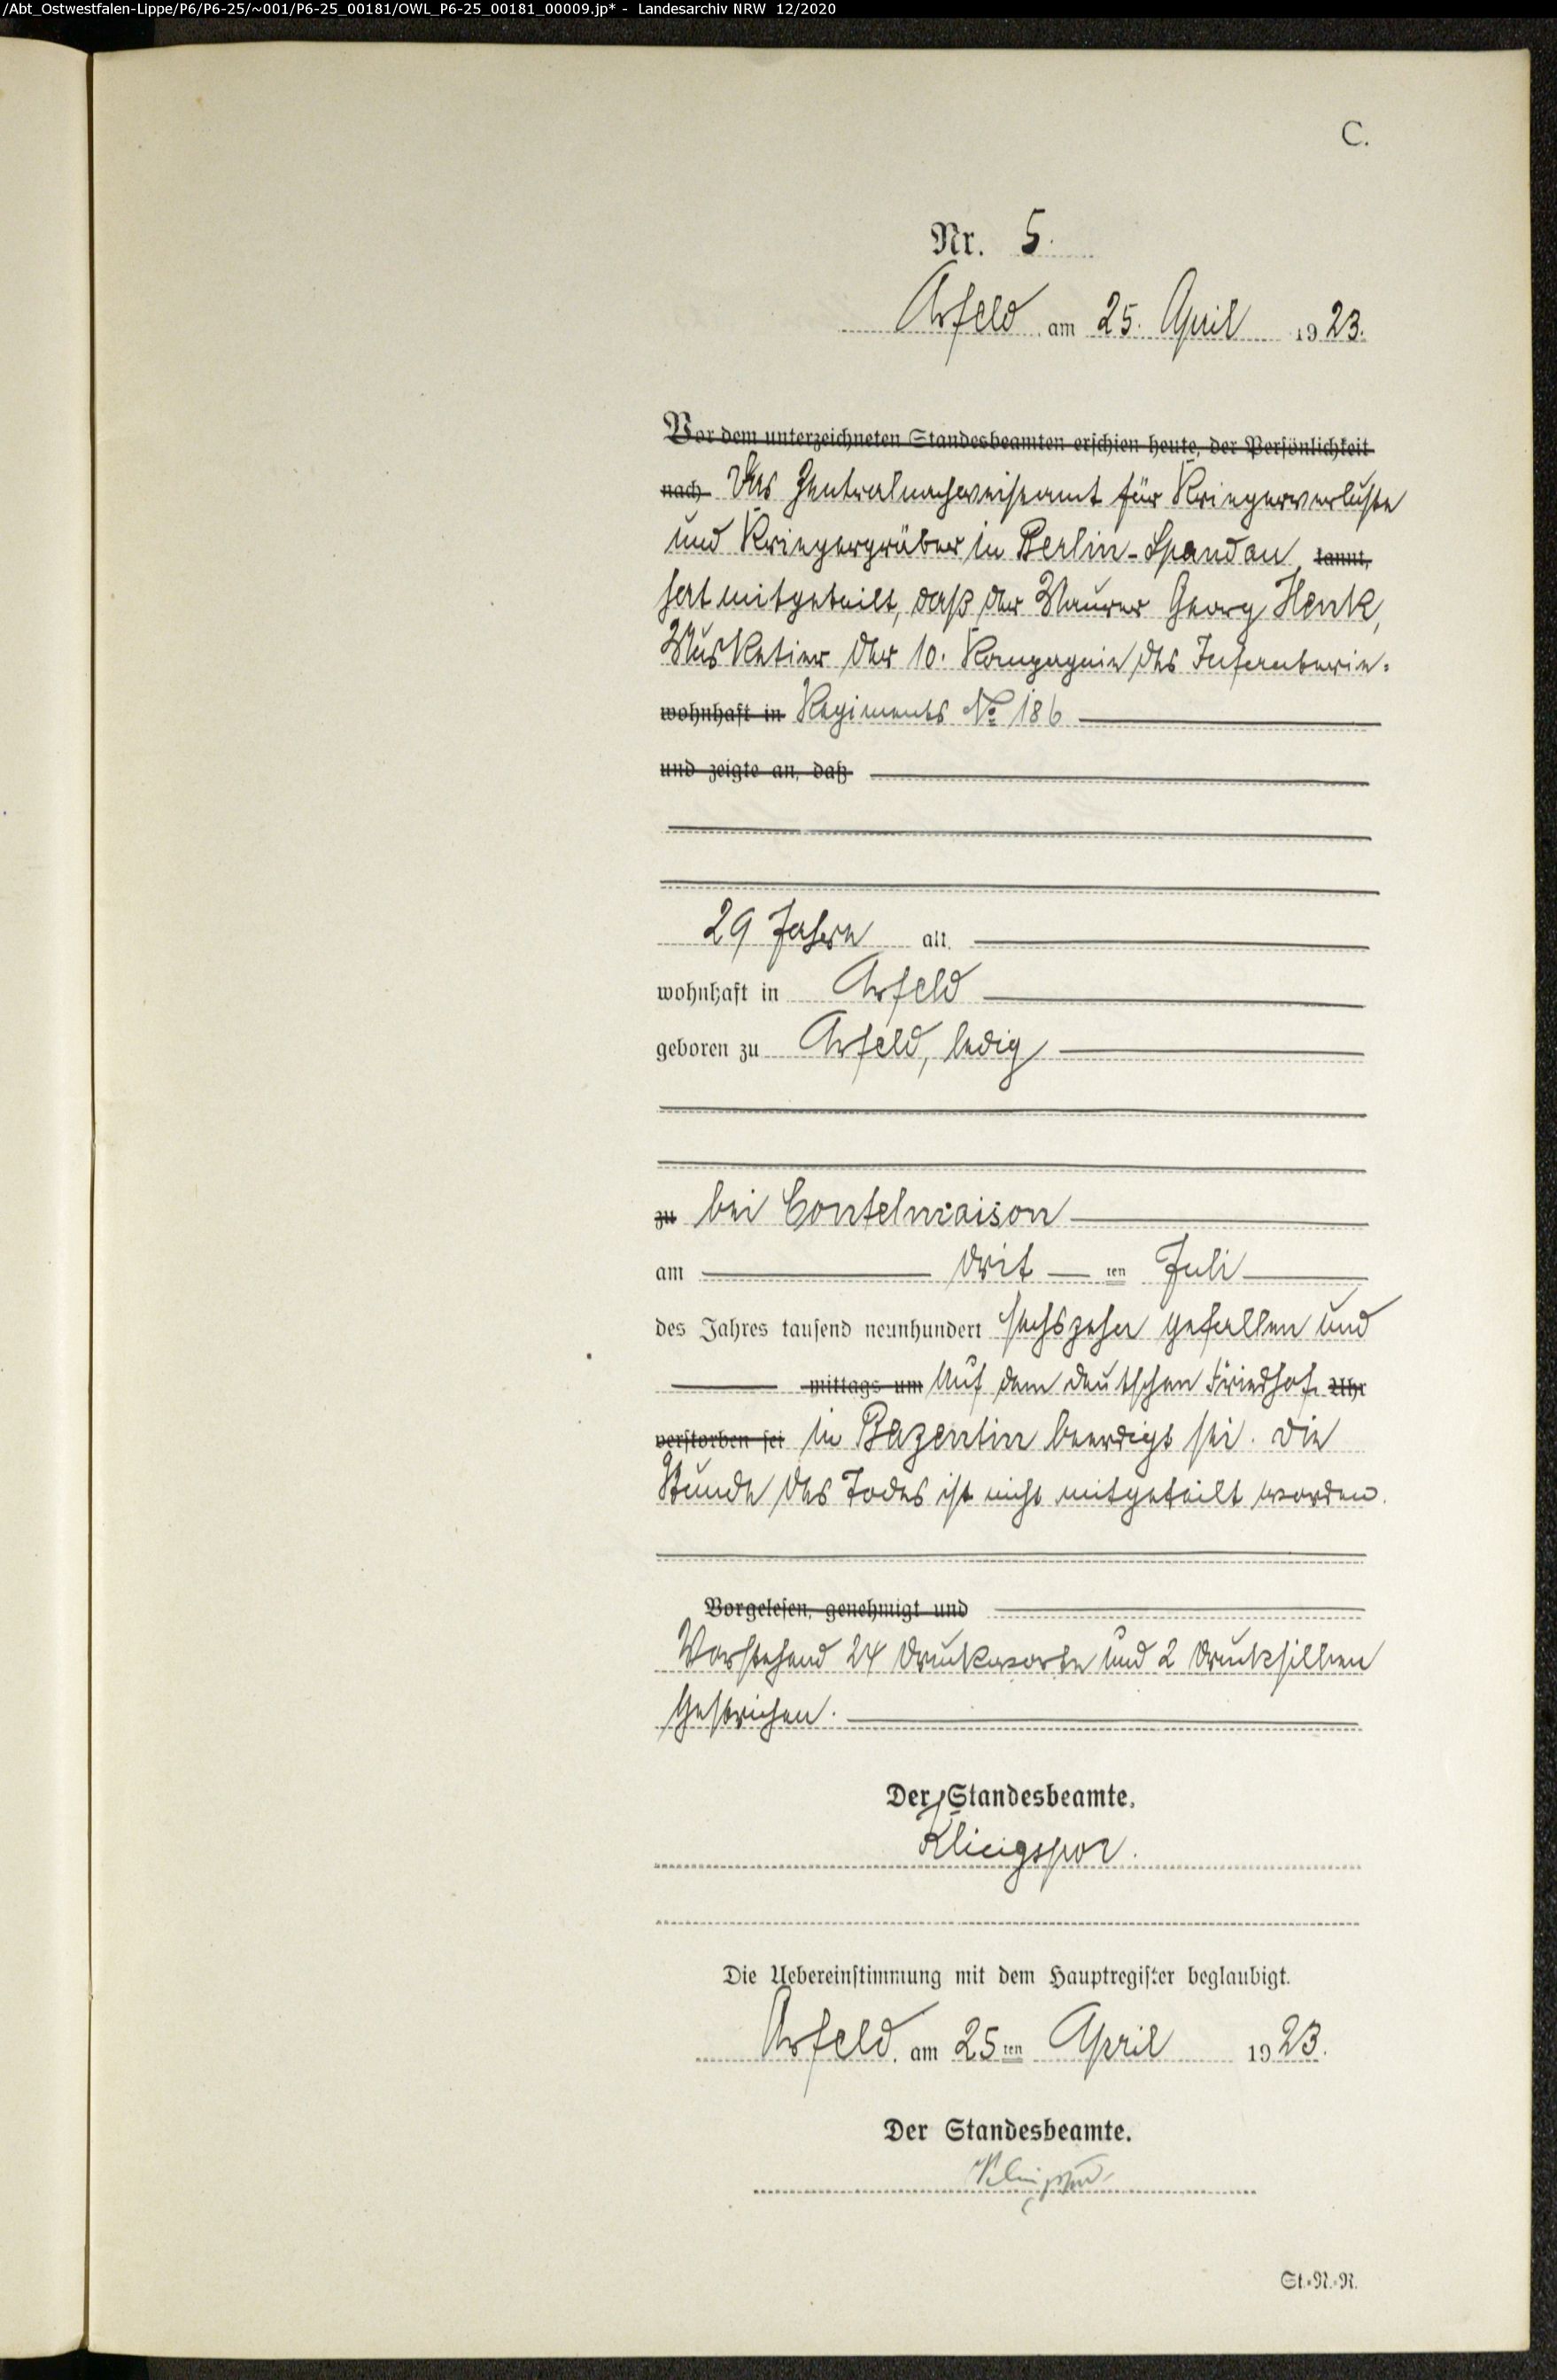 /Abt_Ostwestfalen-Lippe/P6/P6-25/~001/P6-25_00181/OWL_P6-25_00181_00009.jp* - Landesarchiv NRW 12/2020
C.
Nr. 5.
Arfeld am 25. April 1923.
Vor dem unterzeichneten Standesbeamten erschien heute, der Persönlichkeit
nach Das Zentralnachweiseamt für Kriegerverluste
und Kriegergräber in Berlin-Spandau kannt,
hat mitgeteilt, daß der Maurer Georg Henk,
Musketier der 10. Kompagnie des Infanterie-
wohnhaft in Regiments No 186
und zeigte an, daß
29 Jahre alt,
wohnhaft in Arfeld
geboren zu Arfeld, ledig
zu bei Contelmaison
am drit ten Juli
des Jahres tausend neunhundert sechszehn gefallen und
mittags um auf dem deutschen Friedhof Uhr
verstorben sei in Bazentin beerdigt sei. Die
Stunde des Todes ist nicht mitgeteilt worden.
Vorgelesen, genehmigt und
Vorstehend 24 Druckworte und 2 Drucksilben
gestrichen.
Der Standesbeamte.
Klingspor.
Die Uebereinstimmung mit dem Hauptregister beglaubigt.
Arfeld, am 25ten April 1923.
Der Standesbeamte.
Klingspor
St.-N.-R.